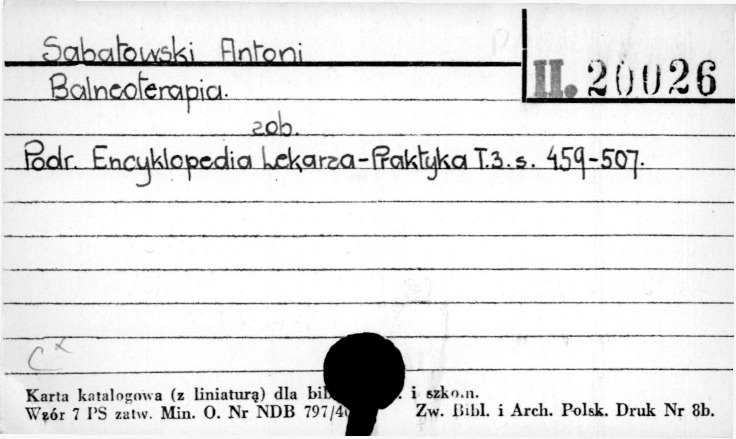 Sabatowski Antoni
II. 20026
Balneoterapia.
zob.
Podr. Encyklopedia Lekarza-Praktyka T.3. s. 459-507.
C x
Karta katalogowa (z liniaturą) dla i szkoln.
Wzór 7 PS zatw. Min. O. Nr NDB Zw. Bibl. i Arch. Polsk. Druk Nr 8b.